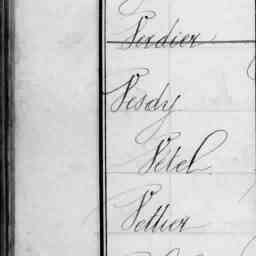 Verdier
Vesdy
Vétel
Vettier